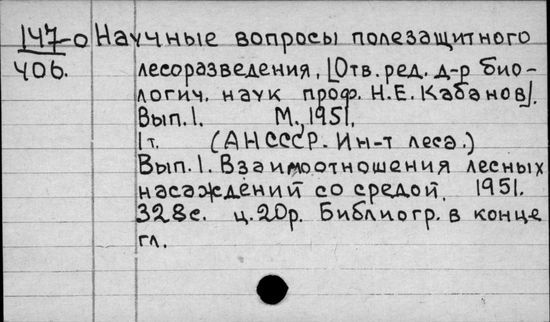 147-0 Научные вопросы полезащитного
406. лесоразведения, [Отв. ред. д-р био-
логич. наук проф. Н.Е. Кабанов].
Вып. 1. М., 1951.
1 т. (АН СССР. Ин-т леса.)
Вып. 1. Взаимоотношения лесных
насаждений со средой. 1951.
328с. ц. 20р. Библиогр. в конце
гл.